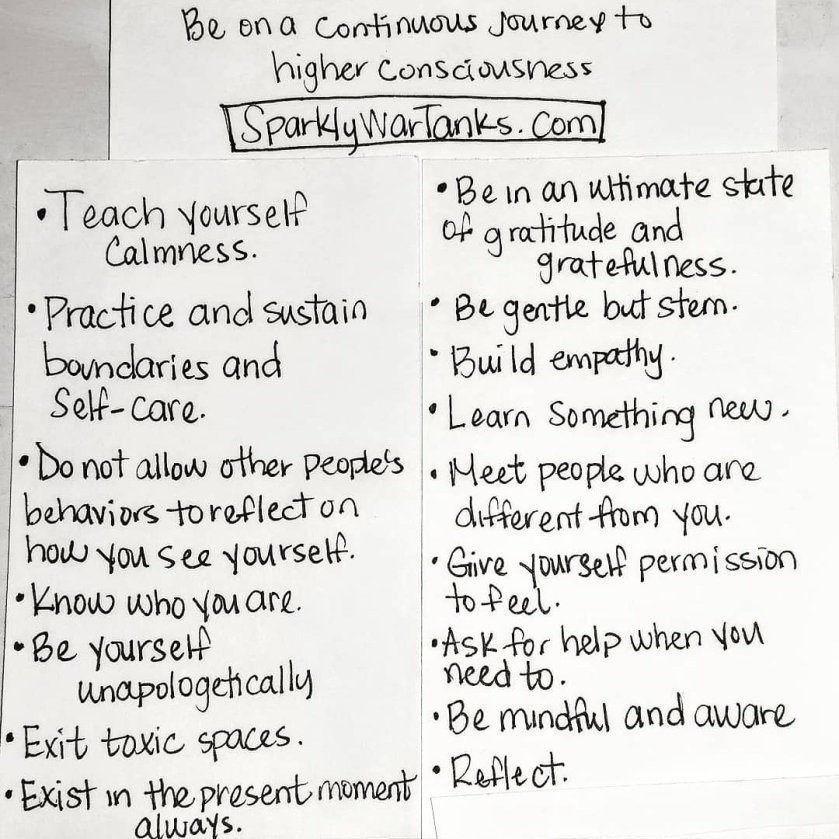 Be on a continuous journey to
higher consciousness
SparklyWarTanks.com
• Teach yourself
Calmness.
• Practice and sustain
boundaries and
Self-care.
• Do not allow other people's
behaviors to reflect on
how you see yourself.
• Know who you are.
• Be yourself
unapologetically
• Exit toxic spaces.
• Exist in the present moment
always.
• Be in an ultimate state
of gratitude and
gratefulness.
• Be gentle but stern.
• Build empathy.
• Learn something new.
• Meet people who are
different from you.
• Give yourself permission
to feel.
• Ask for help when you
need to.
• Be mindful and aware
• Reflect.